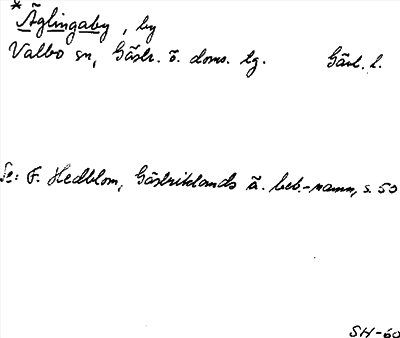 *Äglingaby, by
Valbo sn, Gästr. ö. doms. lg. Gävl. l.
Se: F. Hedblom, Gästriklands ä. beb.-namn, s. 50
SH-60